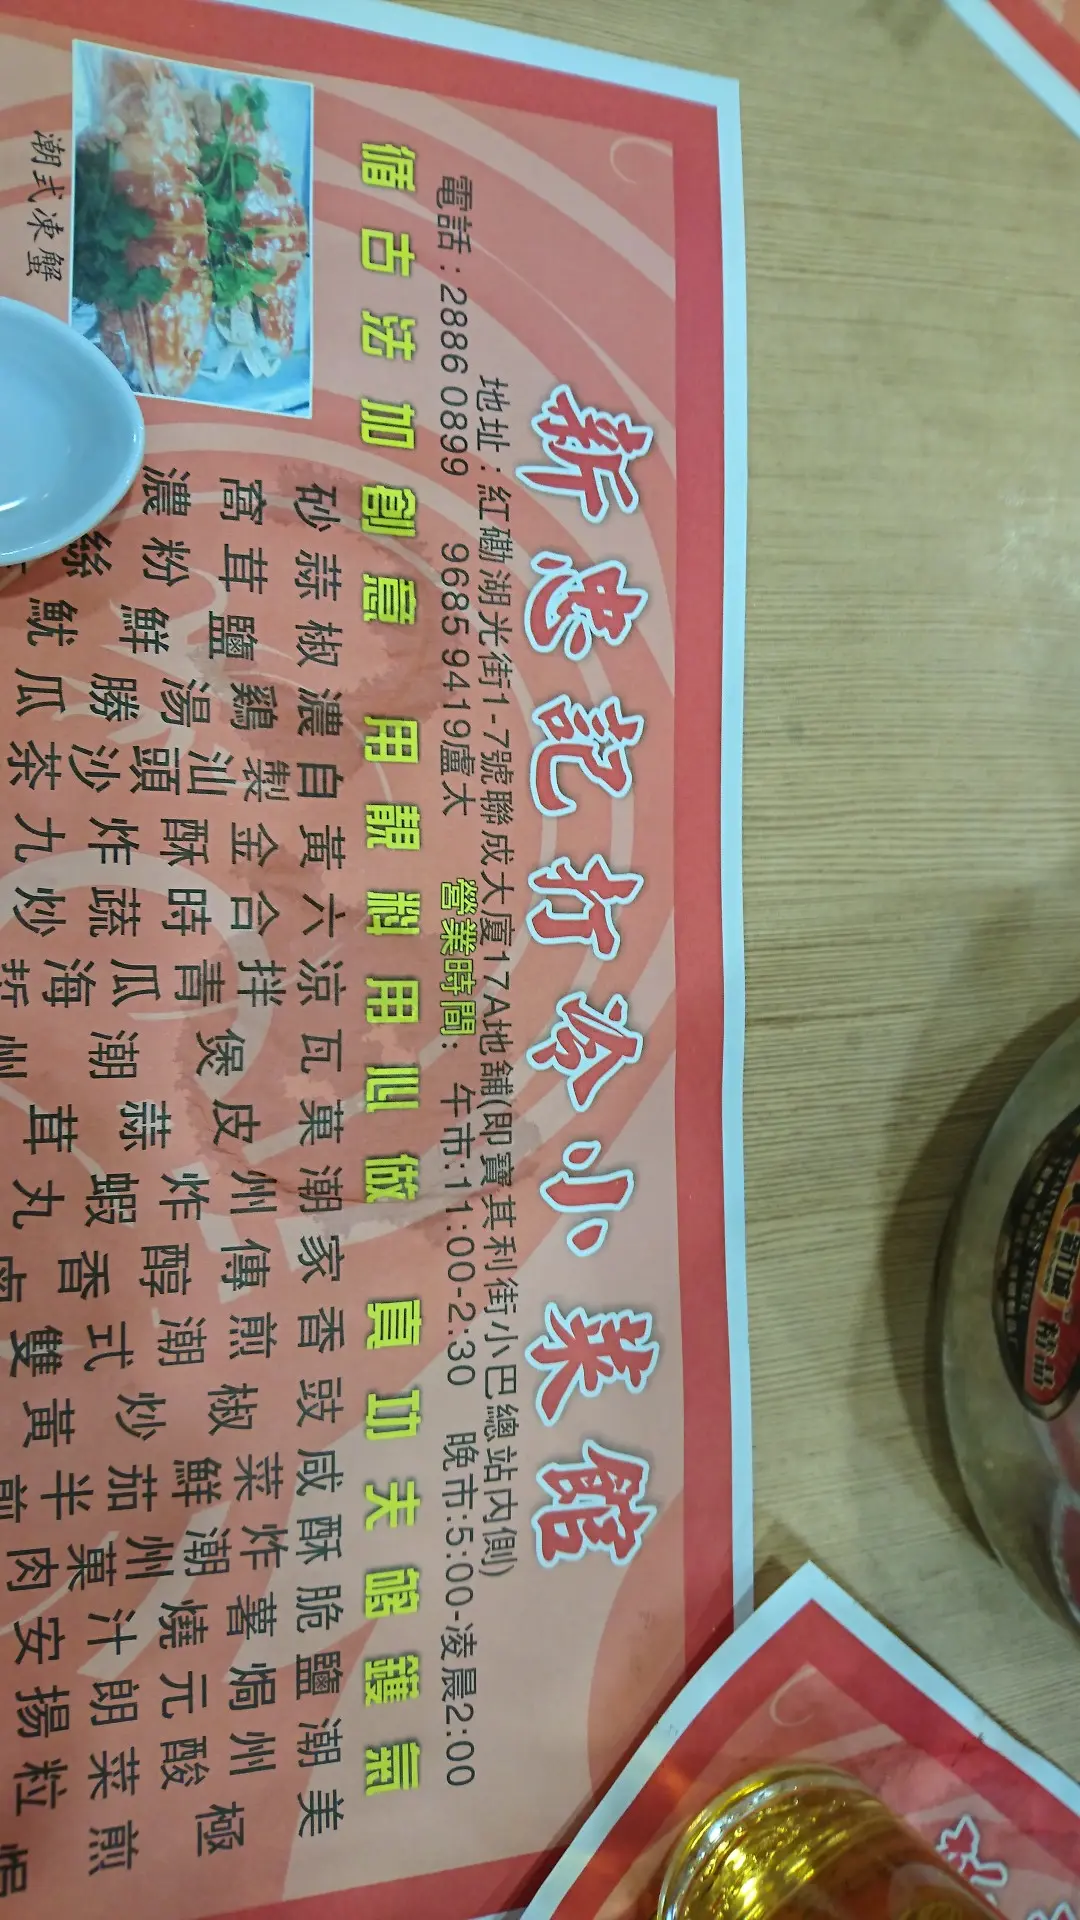 新忠記打冷小菜館
地址：紅磡湖光街1-7號聯成大廈17A地舖(即寶其利街小巴總站內側)
電話：2886 0899 9685 9419盧太 營業時間：午市:11:00-2:30 晚市:5:00-凌晨2:00
循古法加創意 用靚料用心做 真功夫夠鑊氣
潮式凍蟹
美極煎焗
潮州酸菜粒
鹽焗元朗揚
脆薯燒汁安
酥炸潮州菓肉
咸菜鮮茄半煎
豉椒炒黃
香煎潮式雙
家傳醇香鹵
潮州炸蝦丸
菓皮蒜茸
瓦煲潮州
涼拌青瓜海蜇
六合時蔬炒
黃金酥炸九
自製汕頭沙茶
濃鷄湯勝瓜
椒鹽鮮魷
蒜茸粉絲
砂窩濃
精品